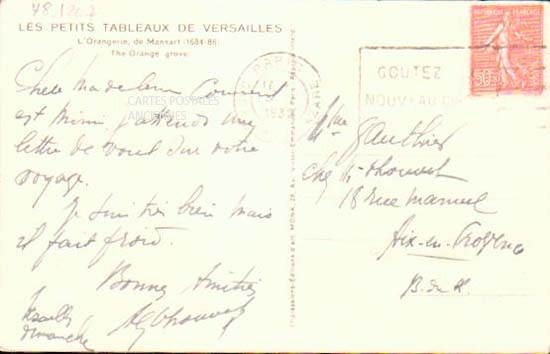 LES PETITS TABLEAUX DE VERSAILLES
L'Orangerie, de Mansart (1684-86)
The Orange grove
Chère Madeleine Comment
est Mimi j'attends une
lettre de vous sur votre
voyage.
Je suis très bien mais
il fait froid.
Bonnes Amitiés
dimanche
CARTES POSTALES
ANCIENNES
PARIS
GOUTEZ
50c
Mme Gauthier
chez
18 rue Manuel
Aix-en-Provence
B. du R.